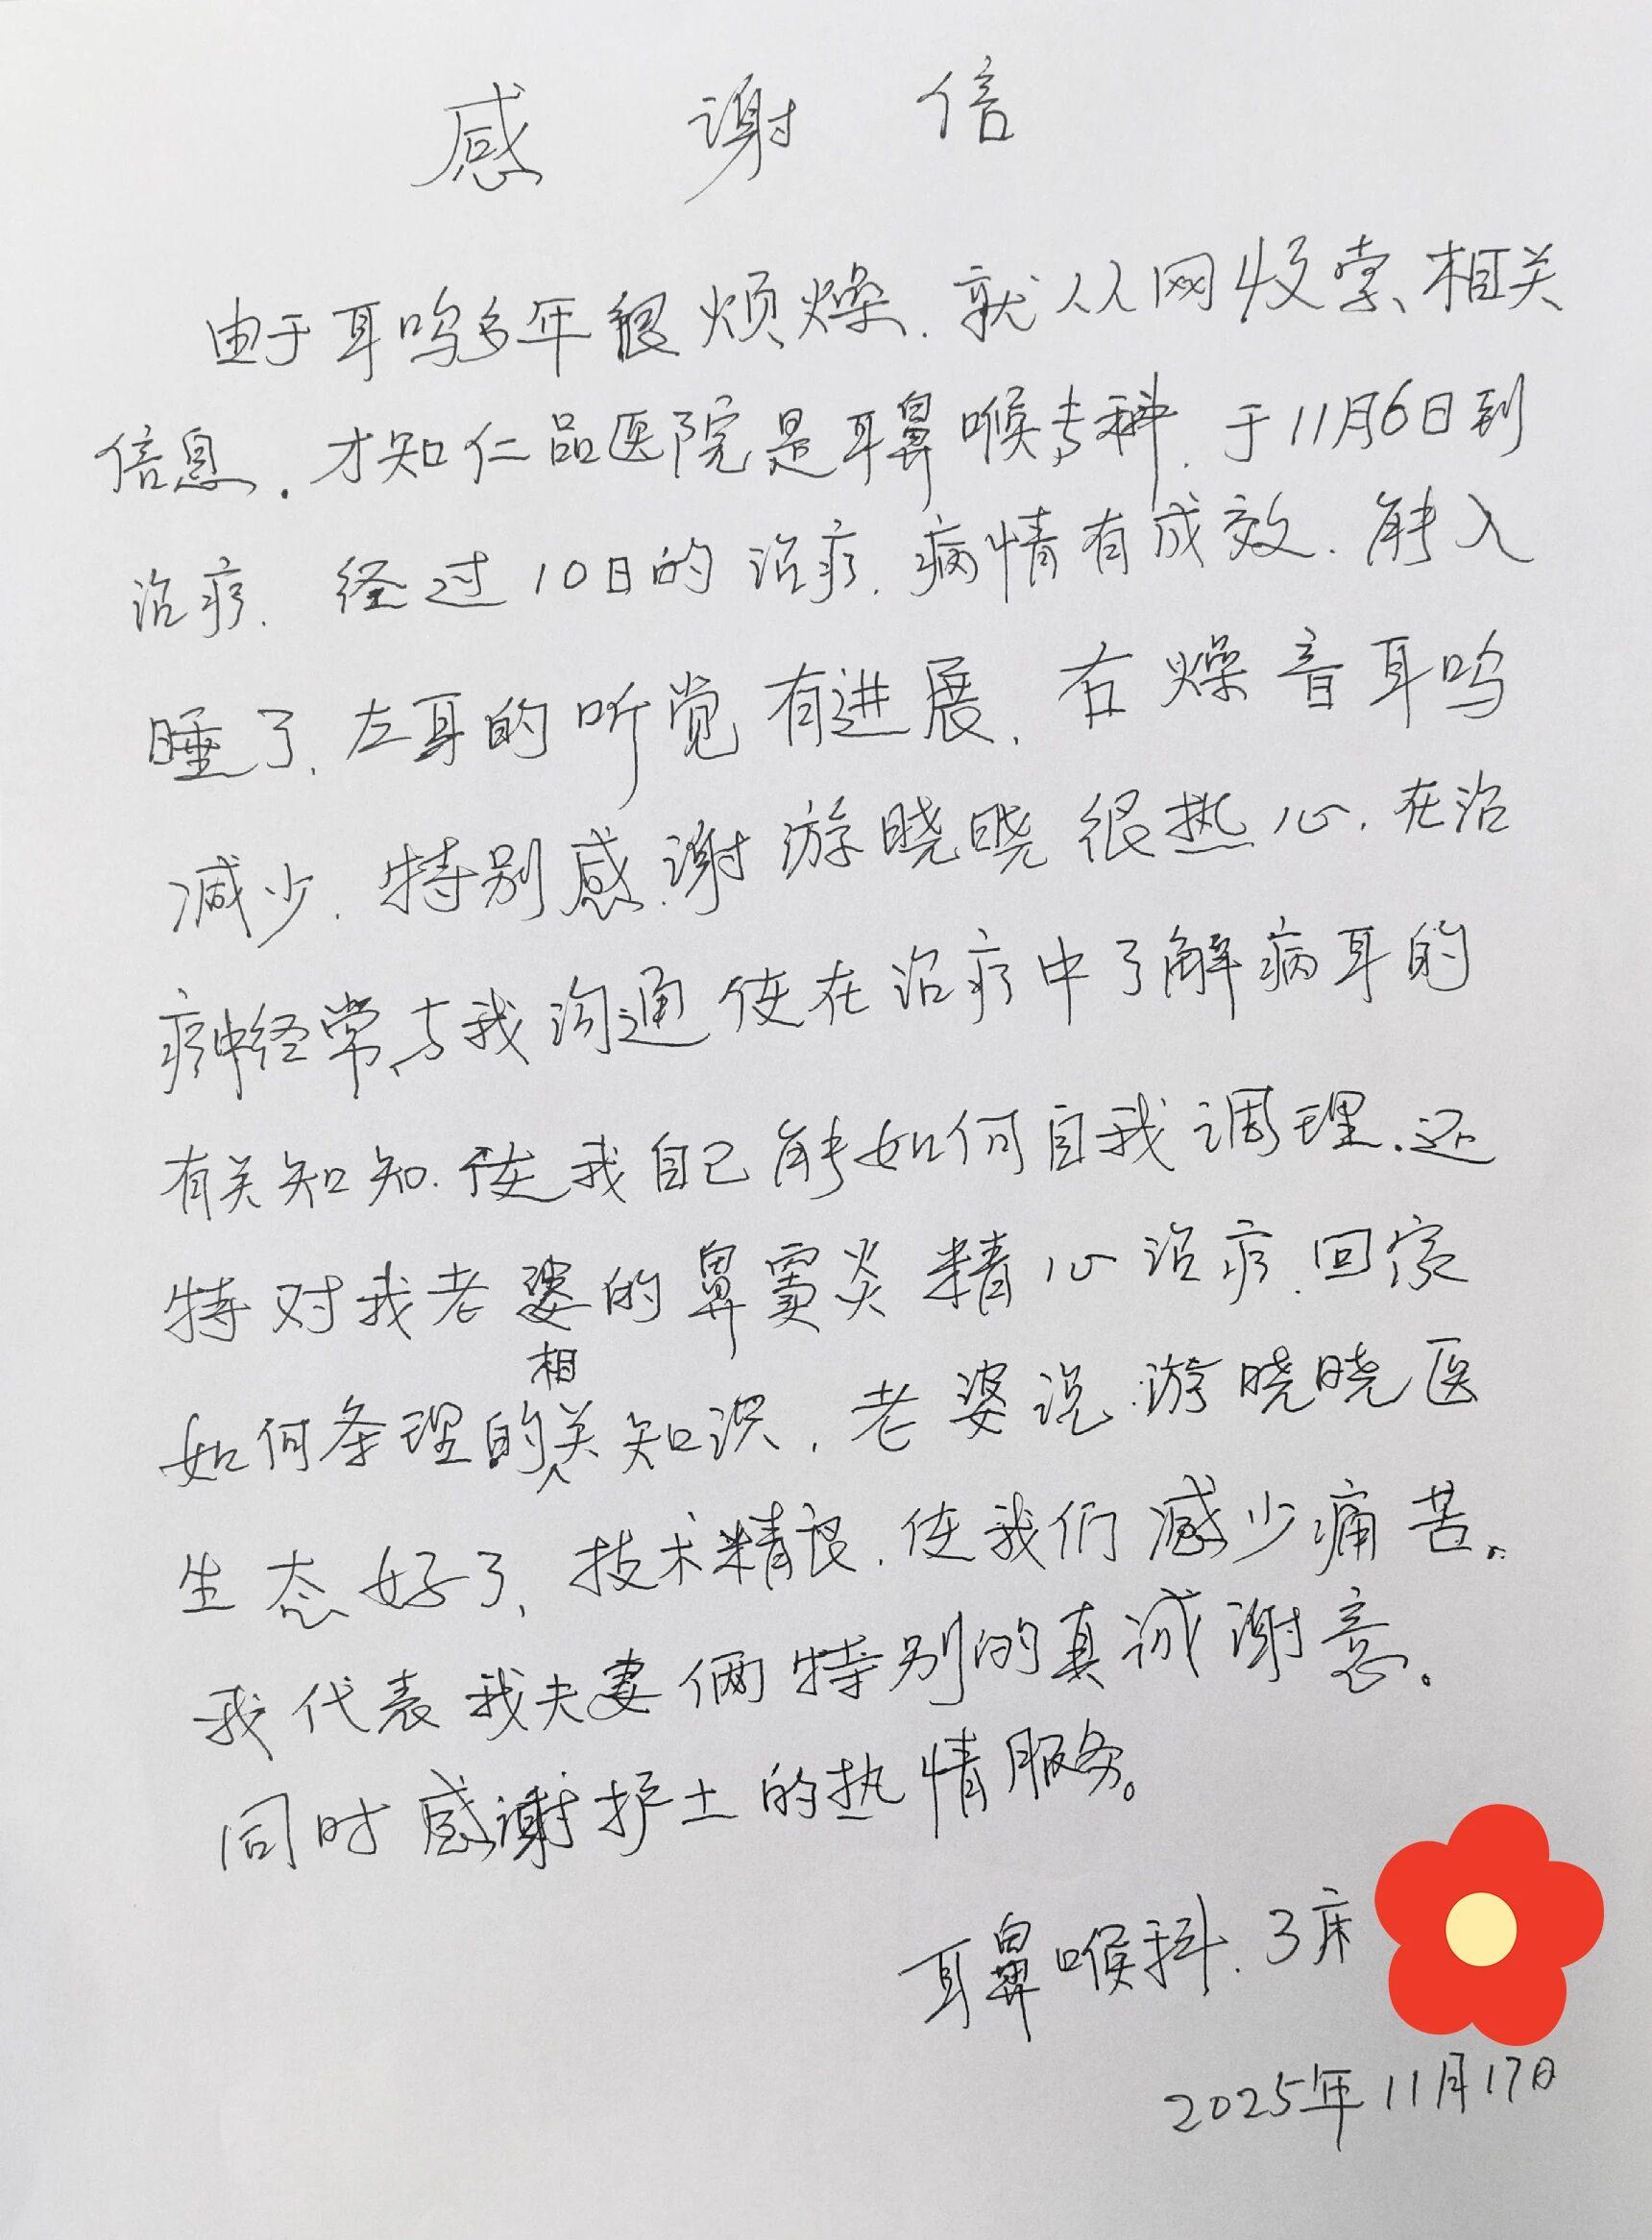 感谢信
由于耳鸣多年很烦燥.就从网收索相关
信息.才知仁品医院是耳鼻喉专科.于11月6日到
治疗.经过10日的治疗.病情有成效.能入
睡了.左耳的听觉有进展.右燥音耳鸣
减少.特别感谢游晓晓很热心.在治
经常与我沟通使在治疗中了解病耳的
有关知知.使我自己能如何自我调理.还
特对我老婆的鼻窦炎精心治疗.回家
如何条理的相关知识.老婆说游晓晓医
生态好了.技术精良.使我们减少痛苦。
我代表我夫妻俩特别的真诚谢意。
同时感谢护士的热情服务。
耳鼻喉科.3床
2025年11月17日